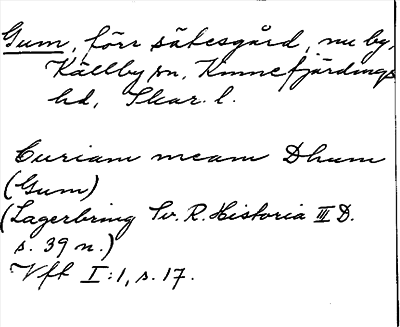 Gum, förr sätesgård, nu by,
Källby sn, Kinnefjärdings
hd, Skar. l.
Curiam meam Dhum
(Gum)
(Lagerbring Sv. R. Historia III D.
s. 39 n.)
Vft I:1, s. 17.